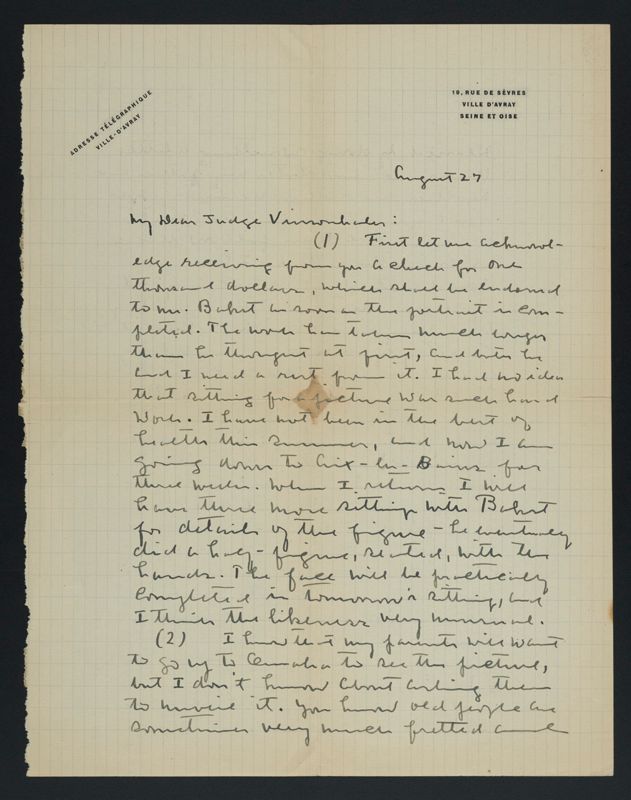 ADRESSE TÉLÉGRAPHIQUE
VILLE-D'AVRAY
19, RUE DE SÈVRES
VILLE D'AVRAY
SEINE ET OISE
August 27
My Dear Judge Vinsonhaler:
(1) First let me acknowl-
edge receiving from you a check for one
thousand dollars, which shall be endorsed
to Mr. Bakst as soon as the portrait is com-
pleted. The work has taken much longer
than he thought at first, and both he
and I need a rest from it. I had no idea
that sitting for a picture was such hard
work. I have not been in the best of
health this summer, and now I am
going down to Aix-les-Bains for
three weeks. When I return I will
have three more sittings with Bakst
for details of the figure - he eventually
did a half-figure, seated, with the
hands. The face will be practically
completed in tomorrow's sitting, and
I think the likeness very unusual.
(2) I know that my parents will want
to go up to Omaha to see this picture,
but I don't know about asking them
to unveil it. You know old people are
sometimes very much fretted and